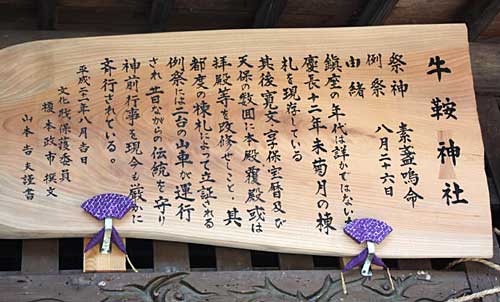 牛鞍神社
祭神　素盞嗚命
例祭　八月二十六日
由緒
鎮座の年代は詳かではない
慶長十二年未菊月の棟
札を現存している
其後寛文、享保宝暦及び
天保の数回に本殿覆殿或は
拝殿等を改修せしこと、其
都度の棟札によって立証される
例祭には二台の山車が運行
され昔ながらの伝統を守り
神前行事を現今も厳かに
斉行されている。
平成二十一年八月吉日
文化財保護委員
榎本政市　撰文
山本吉夫謹書